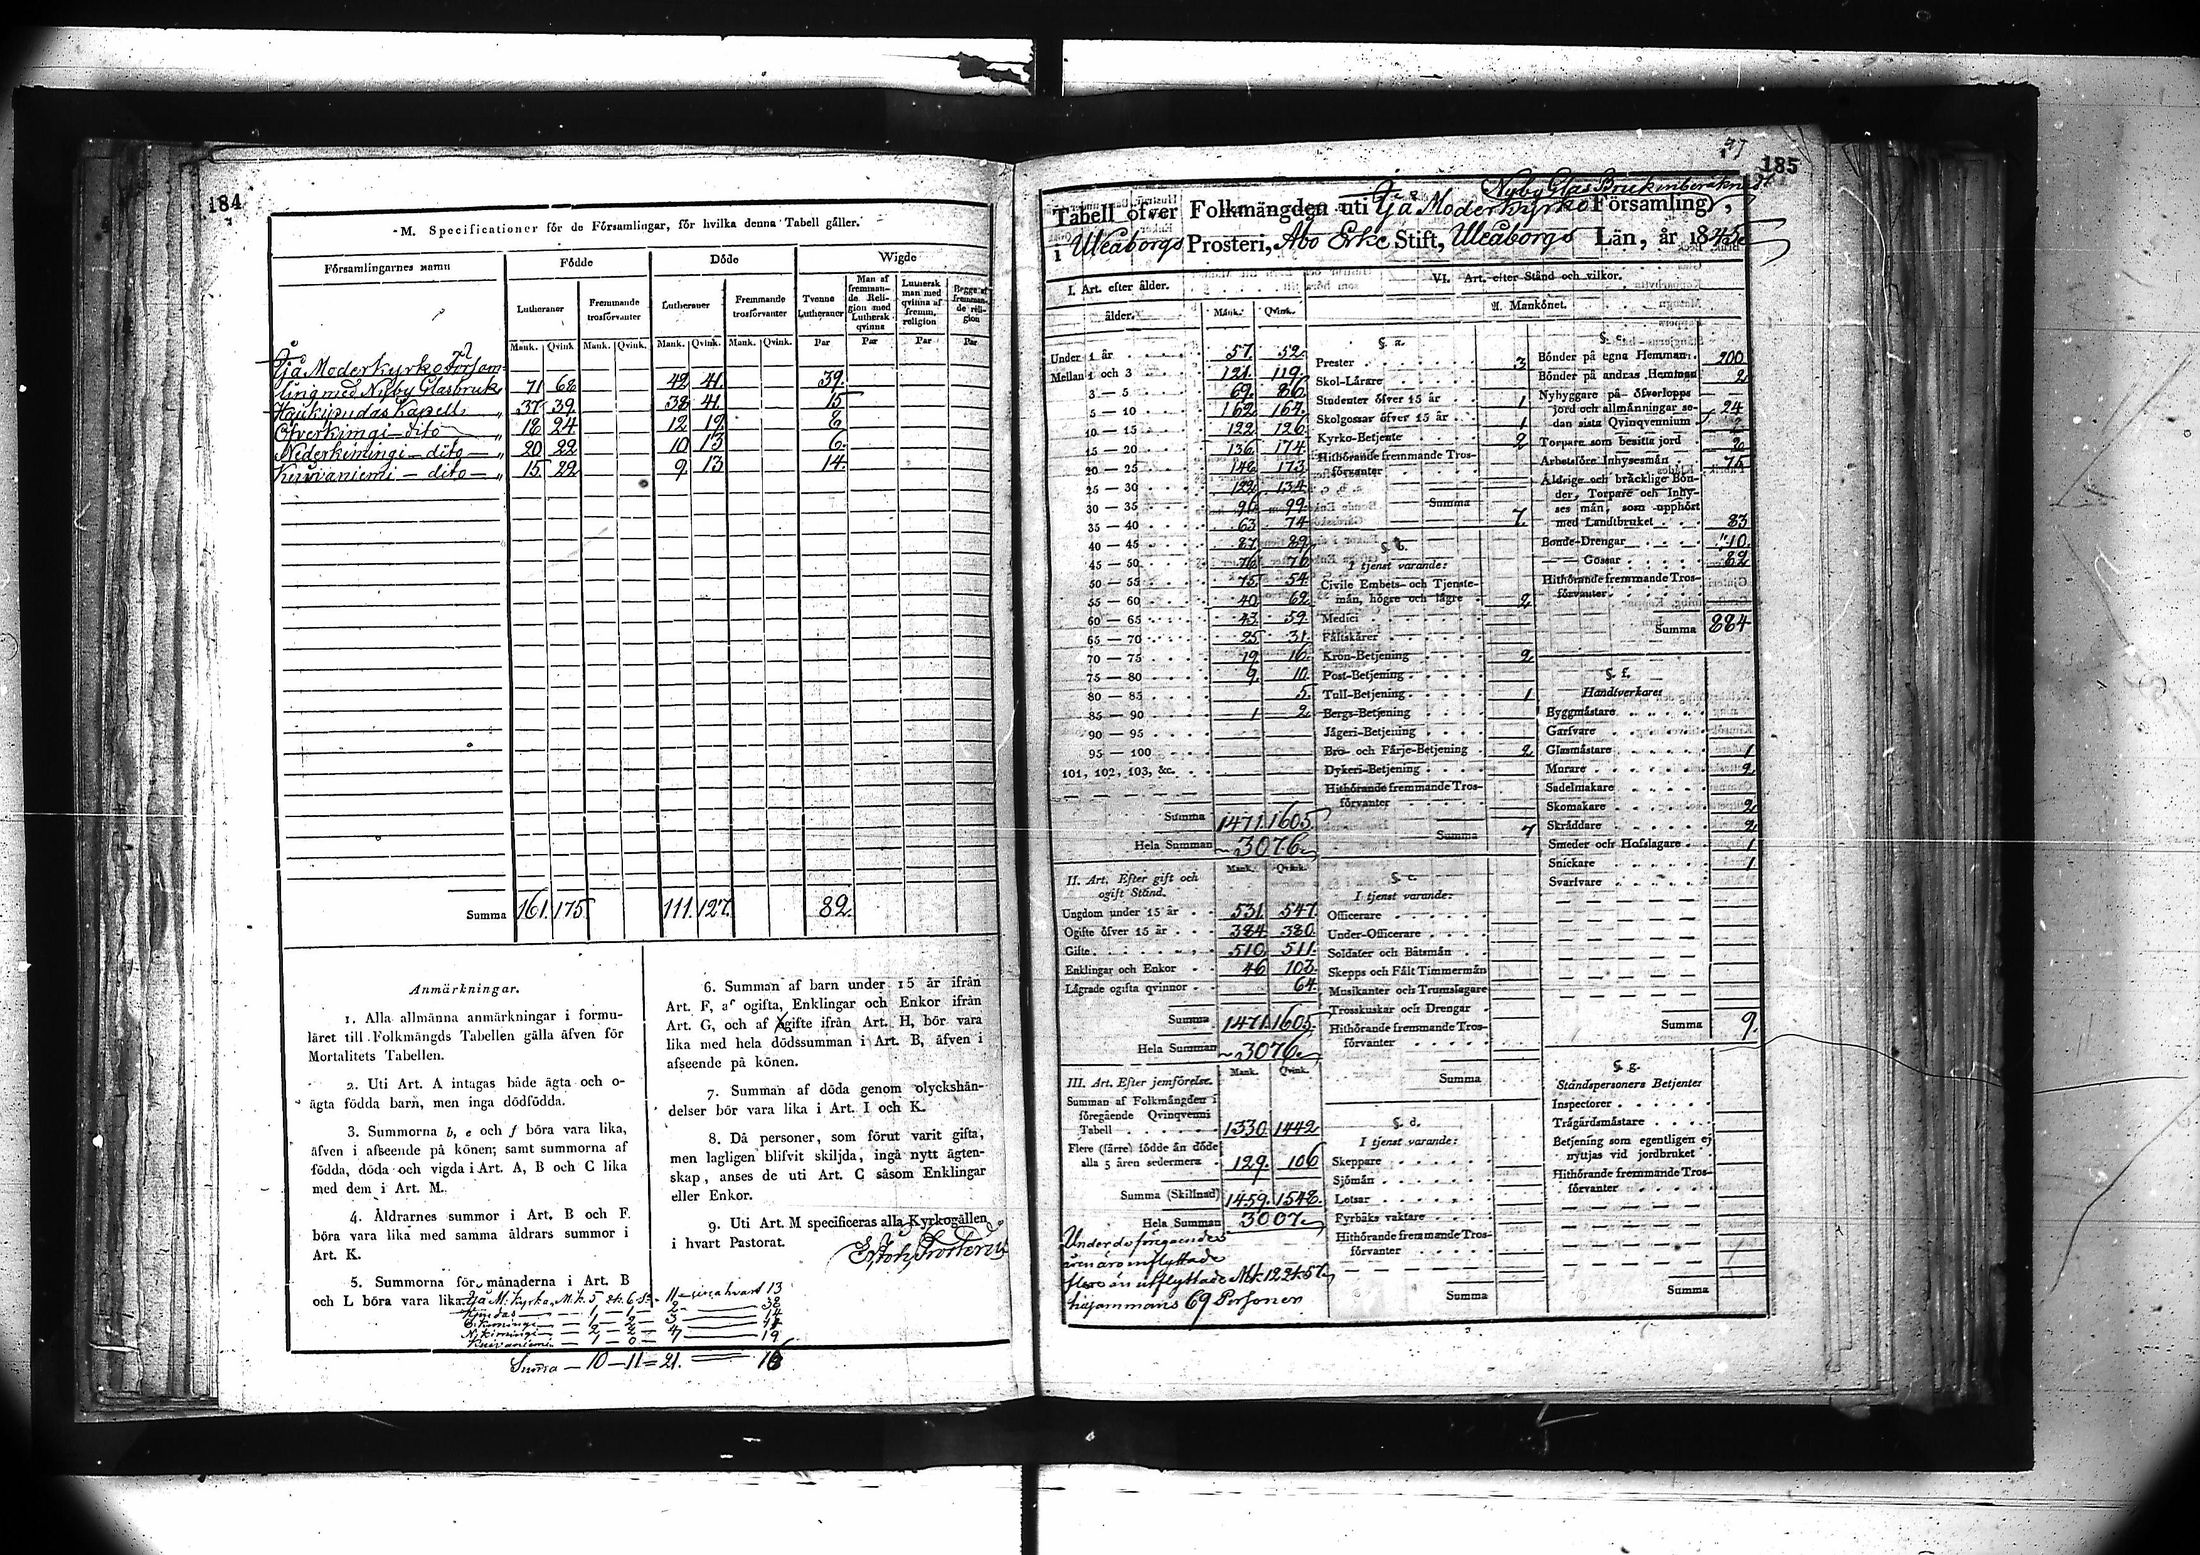 184
M. Specificationer för de Församlingar, för hvilka denna Tabell gäller.
Församlingarnes namn | Födde | Döde | Wigde
Lutheraner | Fremmande trosförvanter | Lutheraner | Fremmande trosförvanter | Tvenne Lutheraner | Man af fremmande Religion med Luthersk qvinna | Luthersk man med qvinna af fremm. religion | Begge af fremmande religion
Mank. Qvink. Mank. Qvink. Mank. Qvink. Mank. Qvink. Par Par Par Par
Ijå Moderkyrko Försam-
ling med Nyby Glasbruk 71 68 42 41 39.
Haukipudas Kapell 37 39 38 41 15
Öfverkimgi dito 18 24 12 19 8
Nederkimingi dito 20 22 10 13 6.
Kuivaniemi dito 15 22 9 13 14.
Summa 161. 175 111. 127. 82.
Anmärkningar.
1. Alla allmänna anmärkningar i formu-
läret till Folkmängds Tabellen gälla äfven för
Mortalitets Tabellen.
2. Uti Art. A intagas både ägta och o-
ägta födda barn, men inga dödfödda.
3. Summorna b, e och f böra vara lika,
äfven i afseende på könen; samt summorna af
födda, döda och vigda i Art. A, B och C lika
med dem i Art. M.
4. Åldrarnes summor i Art. B och F
böra vara lika med samma åldrars summor i
Art. K.
5. Summorna för månaderna i Art. B
och L böra vara lika.
6. Summan af barn under 15 år ifrån
Art. F, af ogifta, Enklingar och Enkor ifrån
Art. G, och af ogifte ifrån Art. H, bör vara
lika med hela dödssumman i Art. B, äfven i
afseende på könen.
7. Summan af döda genom olyckshän-
delser bör vara lika i Art. I och K.
8. Då personer, som förut varit gifta,
men lagligen blifvit skiljda, ingå nytt ägten-
skap, anses de uti Art. C såsom Enklingar
eller Enkor.
9. Uti Art. M specificeras alla Kyrkogällen
i hvart Pastorat.
Summa — 10 — 11 = 21.
185
Nyby Glas Bruk inberäknadt
Tabell öfver Folkmängden uti Ijå Moderkyrko Församling,
i Uleåborgs Prosteri, Åbo Erke Stift, Uleåborgs Län, år 1845.
I. Art. efter ålder.
ålder. Mank. Qvink.
Under 1 år 57. 52.
Mellan 1 och 3 121. 119.
3 — 5 69. 86
5 — 10 162. 164.
10 — 15 122. 126.
15 — 20 136. 174
20 — 25 146 173
25 — 30 122 134
30 — 35 96 99
35 — 40 63 74
40 — 45 87. 89
45 — 50 76 76
50 — 55 75 54
55 — 60 40 62
60 — 65 43 59
65 — 70 25 31.
70 — 75 19 16
75 — 80 9. 10
80 — 85 5.
85 — 90 1 2
90 — 95
95 — 100
101, 102, 103, &c.
Summa 1471. 1605.
Hela Summan 3076
II. Art. Efter gift och
ogift Stånd.
Mank. Qvink.
Ungdom under 15 år 531. 547.
Ogifte öfver 15 år 384. 380.
Gifte 510. 511.
Enklingar och Enkor 46 103.
Lägrade ogifta qvinnor 64.
Summa 1471. 1605.
Hela Summan 3076
III. Art. Efter jemförelse.
Mank. Qvink.
Summan af Folkmängden i
föregående Qvinqvenni
Tabell 1330. 1442.
Flere (färre) födde än döde
alla 5 åren sedermera 129. 106
Summa (Skillnad) 1459. 1548.
Hela Summan 3007
Under de föregående
åren äro inflyttade
flere än utflyttade Mk. 12 Qk. 57
tillsammans 69 Personer
VI. Art. efter Stånd och vilkor.
A. Mankönet.
§. a.
Prester 3
Skol-Lärare
Studenter öfver 15 år 1
Skolgossar öfver 15 år 1
Kyrko-Betjente 2
Hithörande fremmande Tros-
förvanter
Summa 7.
§. b.
I tjenst varande:
Civile Embets- och Tjenste-
män, högre och lägre 2
Medici
Fältskärer
Kron-Betjening 2
Post-Betjening
Tull-Betjening 1
Bergs-Betjening
Jägeri-Betjening
Bro- och Färje-Betjening 2
Dykeri-Betjening
Hithörande fremmande Tros-
förvanter
Summa 7
§. c.
I tjenst varande:
Officerare
Under-Officerare
Soldater och Båtsmän
Skepps och Fält Timmermän
Musikanter och Trumslagare
Trosskuskar och Drengar
Hithörande fremmande Tros-
förvanter
Summa
§. d.
I tjenst varande:
Skeppare
Sjömän
Lotsar
Fyrbåks vaktare
Hithörande fremmande Tros-
förvanter
Summa
Bönder på egna Hemman 200
Bönder på andras Hemman 2
Nybyggare på öfverlopps
jord och allmänningar se-
dan sista Qvinqvennium 24
Torpare som besitta jord
Arbetsföre Inhysesmän 75
Åldrige och bräcklige Bön-
der, Torpare och Inhy-
ses män, som upphört
med Landtbruket 83
Bonde-Drengar 10.
— — Gossar 82
Hithörande fremmande Tros-
förvanter
Summa 884
§. f.
Handtverkare
Byggmästare
Garfvare
Glasmästare 1
Murare 2
Sadelmakare
Skomakare 2
Skräddare 2
Smeder och Hofslagare 1
Snickare 1
Svarfvare
Summa 9.
§. g.
Ståndspersoners Betjenter
Inspectorer
Trägårdsmästare
Betjening som egentligen ej
nyttjas vid jordbruket
Hithörande fremmande Tros-
förvanter
Summa